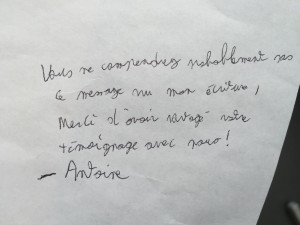 Vous ne comprendrez probablement pas
le message vu mon écriture,
Merci d'avoir partagé votre
témoignage avec nous !
- Antoine